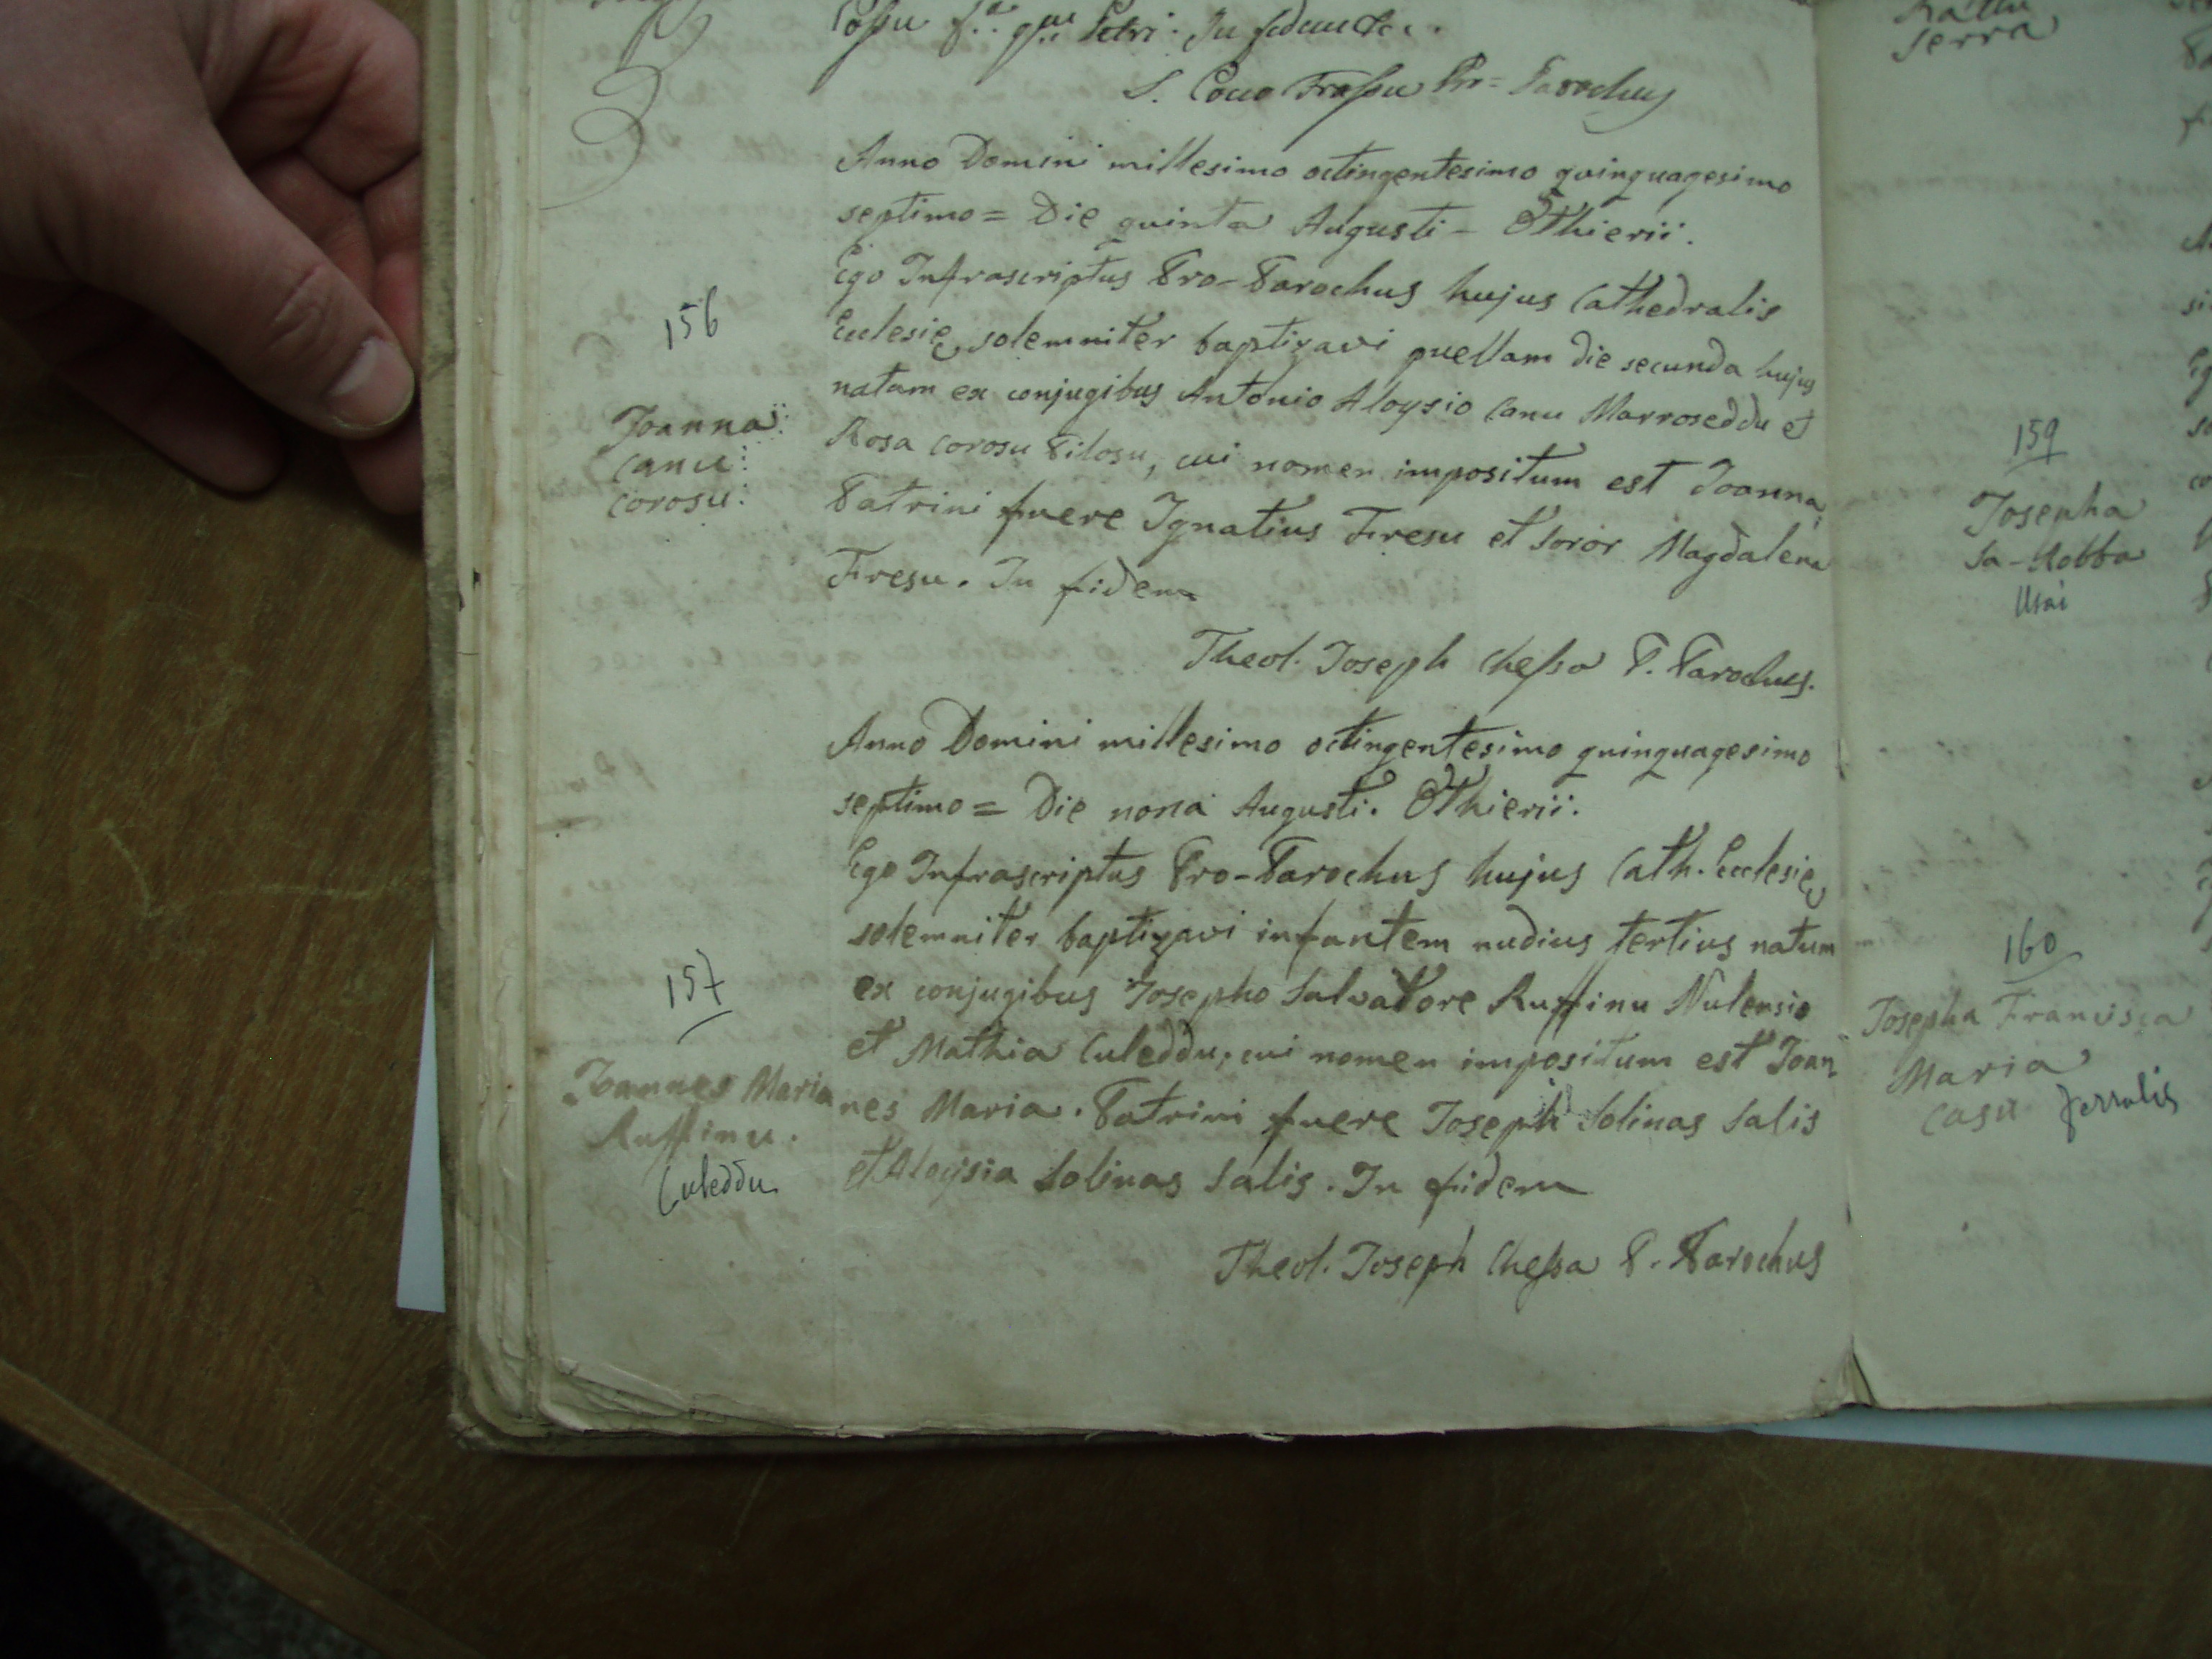 Possu f.a qm Petri. In fidem &c.
S. Coco Frassu Pr= Parochus
156
Joanna
Canu
Corosu
Anno Domini millesimo octingentesimo quinquagesimo
septimo= Die quinta Augusti - Othierii.
Ego Infrascriptus Pro-Parochus hujus Cathedralis
Ecclesię solemniter baptizavi puellam die secunda hujus
natam ex conjugibus Antonio Aloysio Canu Marroseddu et
Rosa Corosu Pilosu, cui nomen impositum est Joanna,
Patrini fuere Ignatius Fresu et soror Magdalena
Fresu. In fidem
Theol. Joseph Chessa P. Parochus.
157
Joannes Maria
Ruffinu.
Culeddu
Anno Domini millesimo octingentesimo quinquagesimo
septimo= Die nona Augusti. Othierii.
Ego Infrascriptus Pro-Parochus hujus Cath. Ecclesię
solemniter baptizavi infantem nudius tertius natum
ex conjugibus Josepho Salvatore Ruffinu Nulensio
et Mathia Culeddu, cui nomen impositum est Joan
nes Maria. Patrini fuere Joseph Solinas Salis
et Aloysia Solinas Salis. In fidem
Theol. Joseph Chessa P. Parochus
Serra
159
Josepha
Sa-Robba
Usai
160
Josepha Francisca
Maria
Casu Ferralis